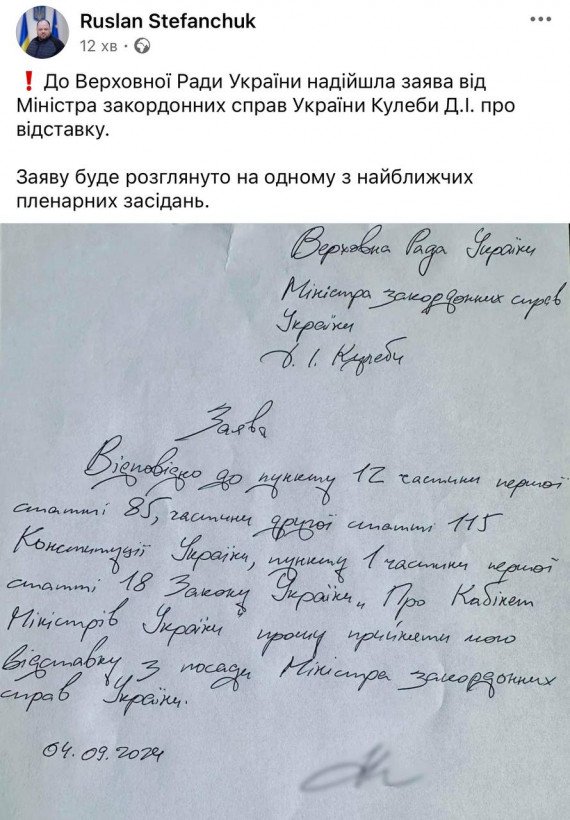 Ruslan Stefanchuk
12 хв ·
❗ До Верховної Ради України надійшла заява від
Міністра закордонних справ України Кулеби Д.І. про
відставку.
Заяву буде розглянуто на одному з найближчих
пленарних засідань.
Верховна Рада України
Міністра закордонних справ
України
Д. І. Кулеби
Заява
Відповідно до пункту 12 частини першої
статті 85, частини другої статті 115
Конституції України, пункту 1 частини першої
статті 18 Закону України „Про Кабінет
Міністрів України" прошу прийняти мою
відставку з посади Міністра закордонних
справ України.
04.09.2024